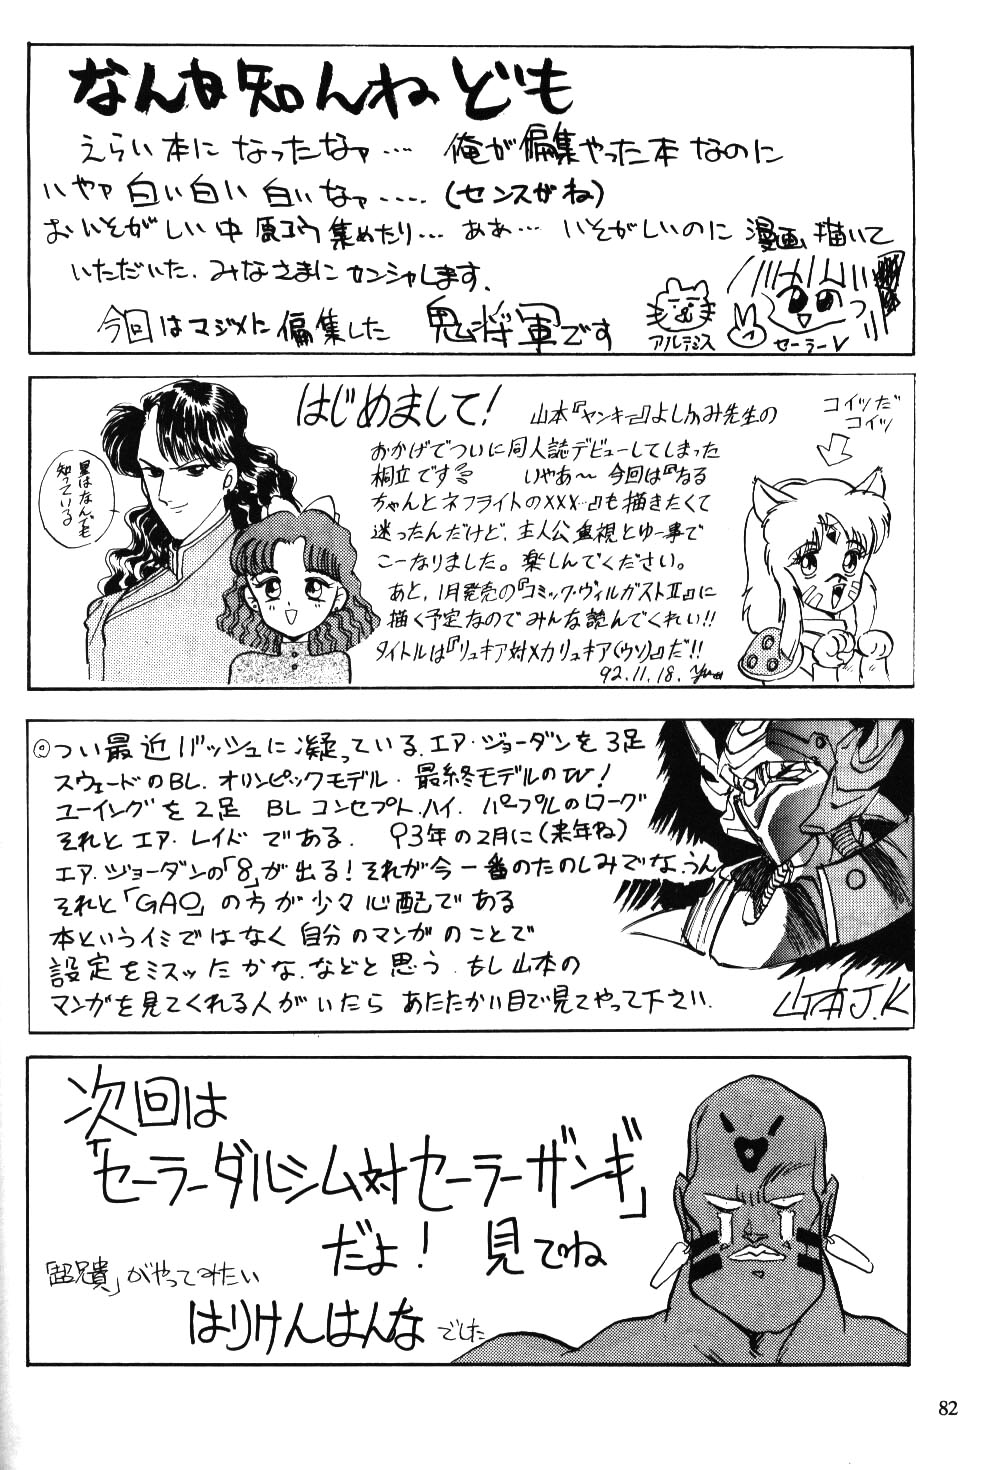 なんか知んねども
えらい本に なったなァ… 俺が偏集やった本 なのに
いやァ 白い白い 白いなァ…‥ (センスがね)
おいそがしい中 原コウ集めたり… ああ… いそがしいのに 漫画描いて
いただいた、みなさまに カンシャします。
今回はマジメに偏集した 鬼将軍です
アルテミス
セーラーV
はじめまして!
山本『ヤンキー』よしふみ先生の
おかげでついに同人誌デビューしてしまった
桐立です いやあ〜 今回は『なる
ちゃんとネフライトの×××…』も描きたくて
迷ったんだけど、主人公重視とゆー事で
こーなりました。楽しんでください。
あと、1月発売の『コミック・ヴィルガストⅡ』に
描く予定なのでみんな読んでくれい!!
タイトルは『リュキア対メカリュキア(ウソ)』だ!!
92.11.18.
星はなんでも
知っている
コイツだ
コイツ
つい最近バッシュに凝っている、エア・ジョーダンを3足
スウェードのBL、オリンピックモデル・最終モデルのW!
ユーイングを2足 BLコンセプト、ハイ、パープルのローグ
それと エア・レイド である、 93年の2月に(来年ね)
エア・ジョーダンの「8」が出る!それが今一番のたのしみでな、うん
それと「GAO」の方が少々心配である
本というイミではなく自分のマンガのことで
設定をミスッたかな、などと思う もし山本の
マンガを見てくれる人がいたら あたたかい目で見てやって下さい.
山本J.K
次回は
「セーラーダルシム対セーラーザンギ」
だよ! 見てね
「超兄貴」がやってみたい
はりけんはんな でした
82